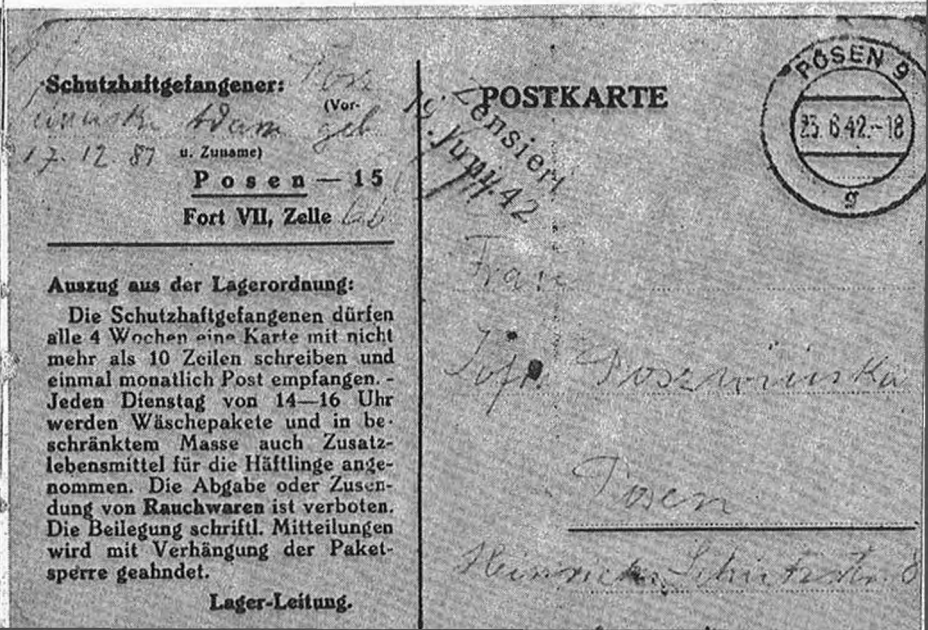 Schutzhaftgefangener:
(Vor-
Adam geb
17. 12. 87 u. Zuname)
Posen — 15
Fort VII, Zelle
Auszug aus der Lagerordnung:
Die Schutzhaftgefangenen dürfen
alle 4 Wochen eine Karte mit nicht
mehr als 10 Zeilen schreiben und
einmal monatlich Post empfangen. -
Jeden Dienstag von 14—16 Uhr
werden Wäschepakete und in be-
schränktem Masse auch Zusatz-
lebensmittel für die Häftlinge ange-
nommen. Die Abgabe oder Zusen-
dung von Rauchwaren ist verboten.
Die Beilegung schriftl. Mitteilungen
wird mit Verhängung der Paket-
sperre geahndet.
Lager-Leitung.
POSTKARTE
Zensiert
19. Juni 42
POSEN 9
25.6.42.-18
g
Frau
Posen